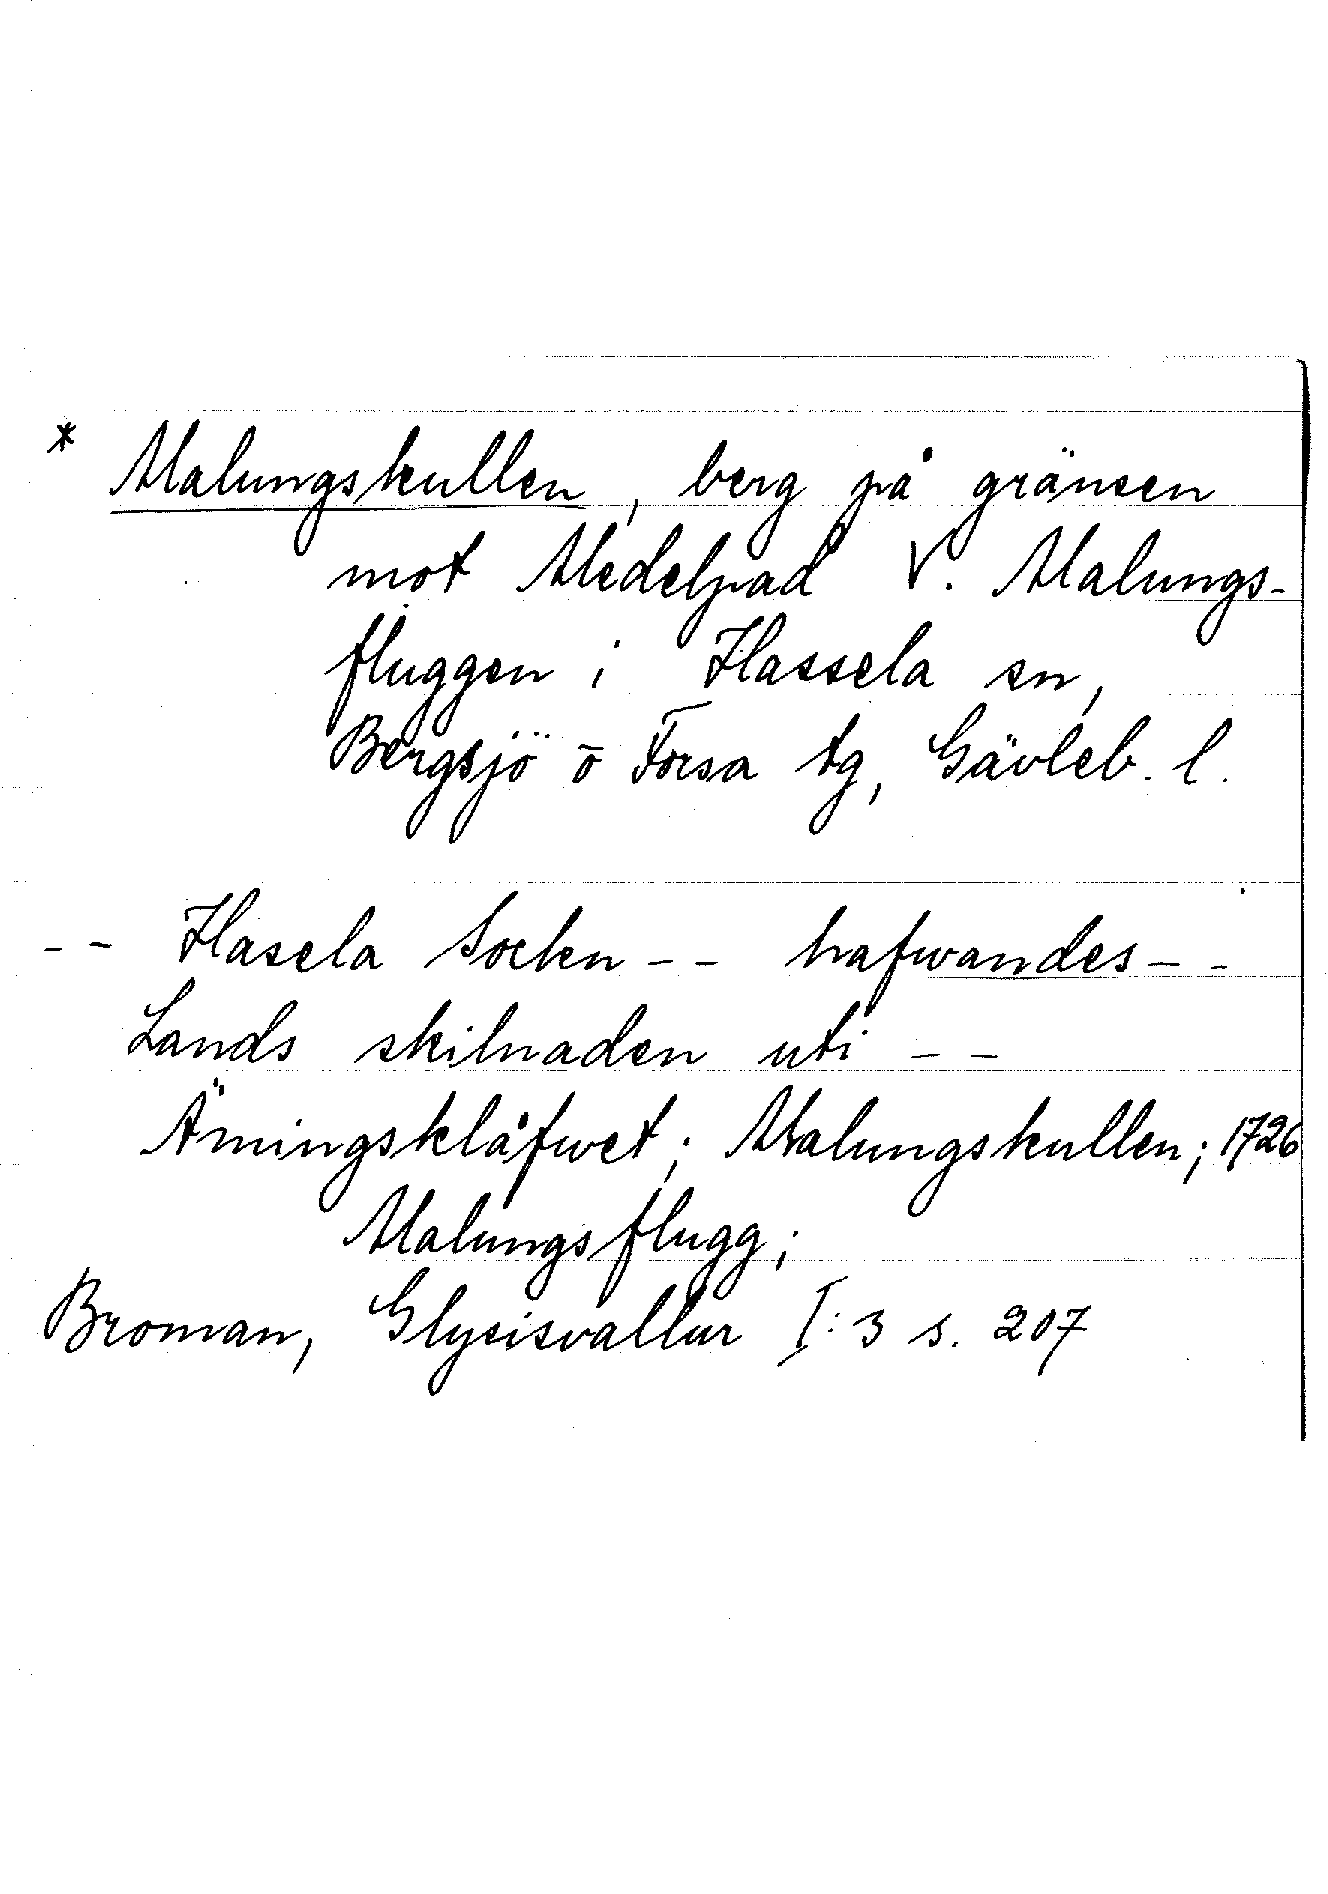 * Malungskullen, berg på gränsen
mot Medelpad V. Malungs-
fluggen i Hassela sn,
Bergsjö o Forsa tg, Gävleb. l.
-- Hasela Sockn -- hafwandes --
Lands skilnaden uti --
Ämingsklåfwet; Malungskullen; 1726
Malungsflugg;
Broman, Glysisvallur I:3 s. 207